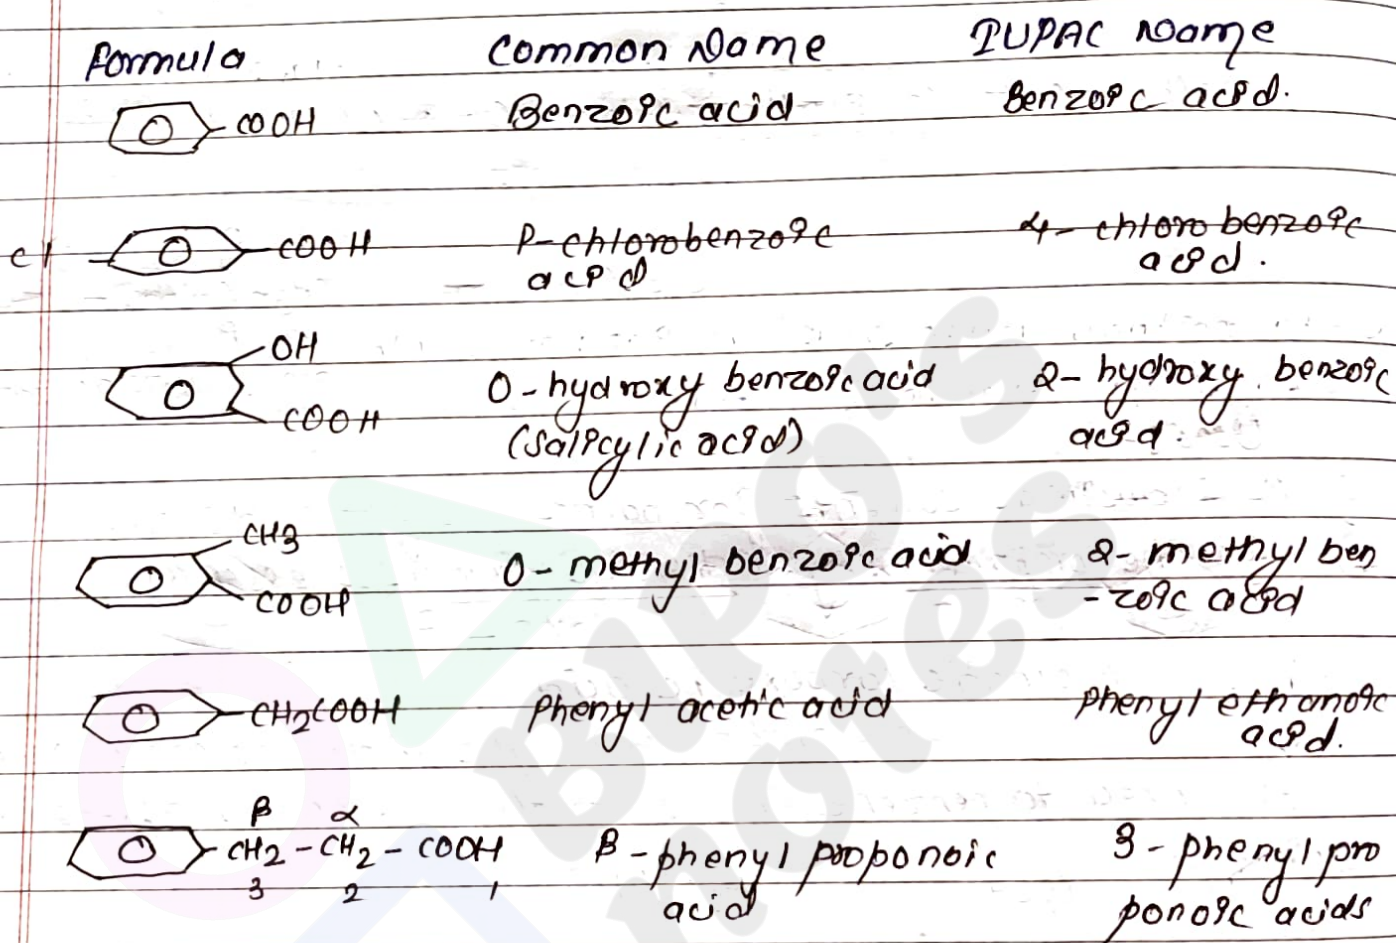 Formula Common Name IUPAC Name
COOH Benzoic acid Benzoic acid.
Cl COOH P-chlorobenzoic 4-chlorobenzoic
acid acid.
OH
O-hydroxy benzoic acid 2-hydroxy benzoic
COOH (Salicylic acid) acid.
CH3
O-methyl benzoic acid 2-methyl ben
COOH -zoic acid
CH2COOH Phenyl acetic acid Phenyl ethanoic
acid.
β α
CH2-CH2-COOH β-phenyl proponoic 3-phenyl pro
3 2 1 acid ponoic acids
Bipo's
notes